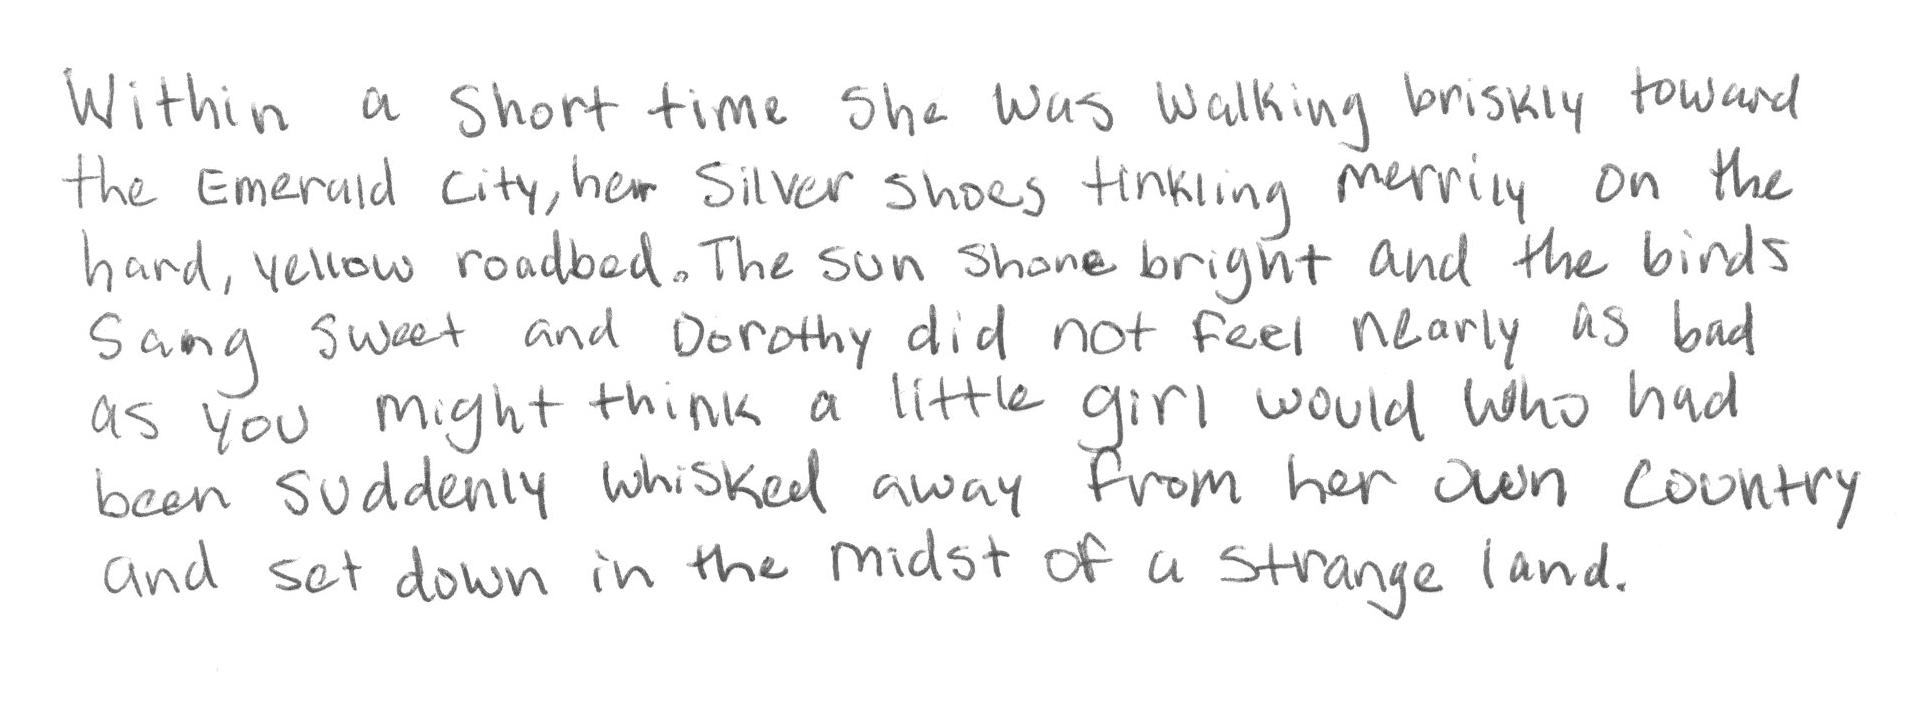 Within a short time she was walking briskly toward
the Emerald City, her Silver shoes tinkling merrily on the
hard, yellow roadbed. The sun shone bright and the birds
sang sweet and Dorothy did not feel nearly as bad
as you might think a little girl would who had
been suddenly whisked away from her own country
and set down in the midst of a strange land.